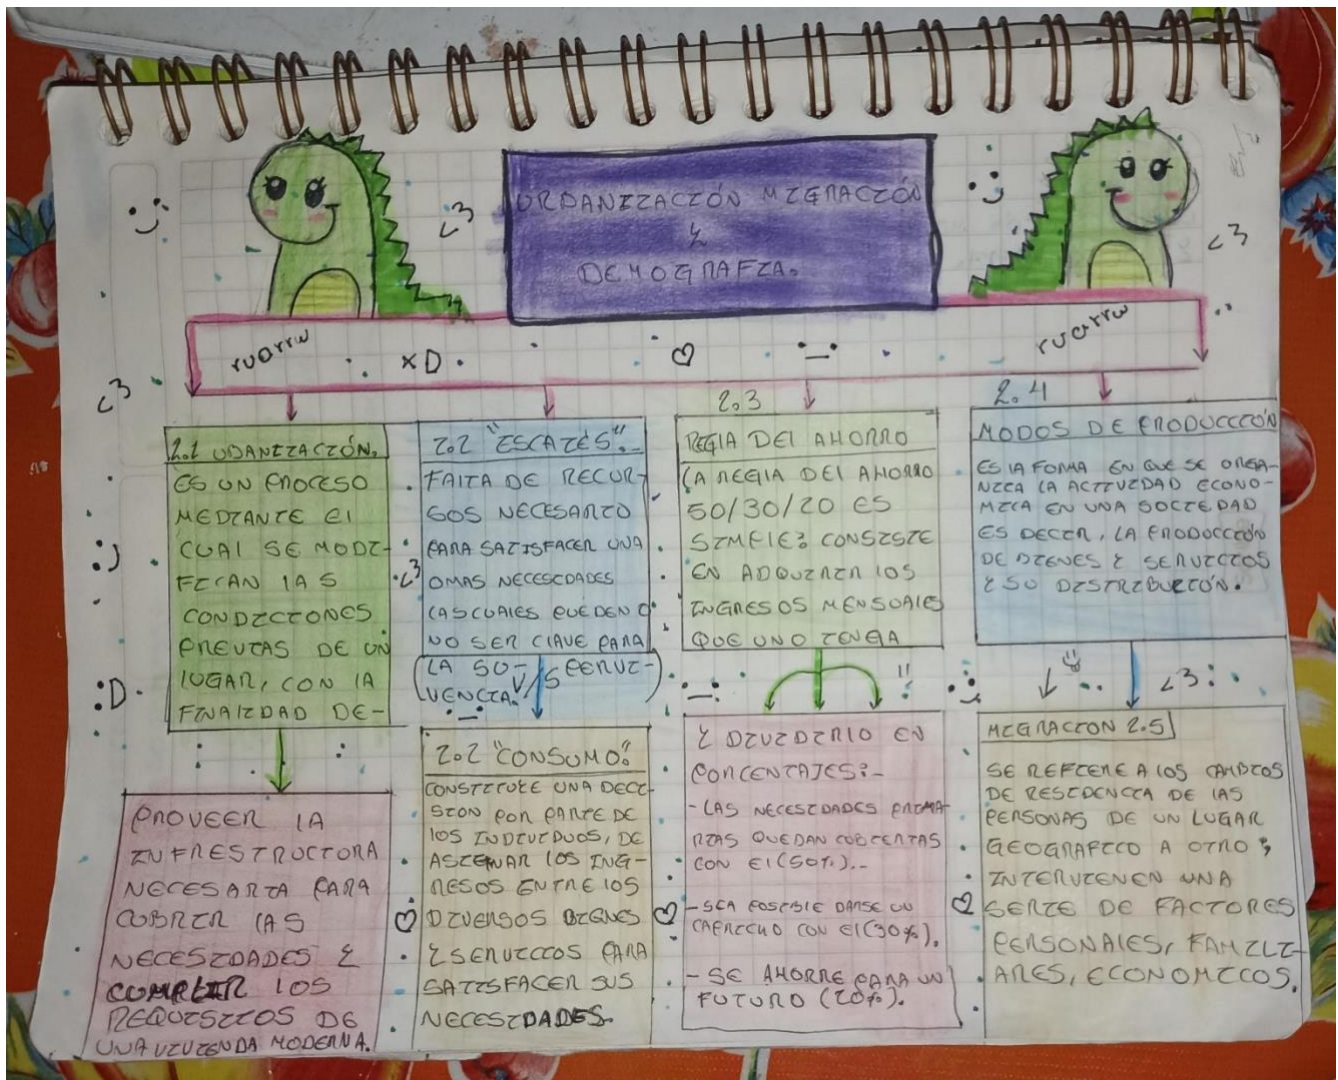 URBANIZACIÓN MIGRACIÓN
Y
DEMOGRAFIA.
<3
<3
ruarrw
xD
ruarrw
<3
2.1 UBANIZACIÓN.
ES UN PROCESO
MEDIANTE El
CUAl SE MODI-
FICAN lAS
CONDICIONES
PREVIAS DE UN
lUGAR, CON lA
FINAlIDAD DE-
PROVEER lA
INFRESTRUCTORA
NECESARIA PARA
CUBRIR lAS
NECESIDADES Y
COMPLIR lOS
REQUISITOS DE
UNA VIVIENDA MODERNA.
2.2 "ESCATÉS".-
FAlTA DE RECUR-
SOS NECESARIO
PARA SATISFACER UNA
O MAS NECESIDADES
LAS CUAlES PUEDEN O
NO SER ClAVE PARA
LA SU- PERVI-
VENCIA. V/S
2.2 "CONSUMO."
CONSTITUYE UNA DECI-
SION POR PARTE DE
lOS INDIVIDUOS, DE
ASIGNAR lOS ING-
RESOS ENTRE lOS
DIVERSOS BIENES
Y SERVICIOS PARA
SATISFACER SUS
NECESIDADES.
2.3
REGlA DEl AHORRO
LA REGlA DEl AHORRO
50/30/20 ES
SIMPlE: CONSISTE
EN ADQUIRIR lOS
INGRESOS MENSUAlES
QUE UNO TENGA
Y DIVIDIRlO EN
PORCENTAJES:-
- LAS NECESIDADES PRIMA-
RIAS QUEDAN CUBIERTAS
CON El (50%).-
- SEA POSIBlE DARSE UN
CAPRICHO CON El (30%).
- SE AHORRE PARA UN
FUTURO (20%).
2.4
MODOS DE PRODUCCIÓN
ES lA FORMA EN QUE SE ORGA-
NIZA LA ACTIVIDAD ECONO-
MICA EN UNA SOCIEDAD
ES DECIR, LA PRODUCCIÓN
DE BIENES Y SERVICIOS
Y SU DISTRIBUCIÓN.
<3
MIGRACION 2.5
SE REFIERE A lOS CAMBIOS
DE RESIDENCIA DE lAS
PERSONAS DE UN LUGAR
GEOGRAFICO A OTRO;
INTERVIENEN UNA
SERIE DE FACTORES
PERSONAlES, FAMILI-
ARES, ECONOMICOS.
<3
:D